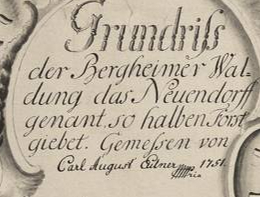 Grundriß
der Bergheimer Wal-
dung das Neuendorff
genant, so halben Forst
giebet. Gemeßen von
Carl August 1751.